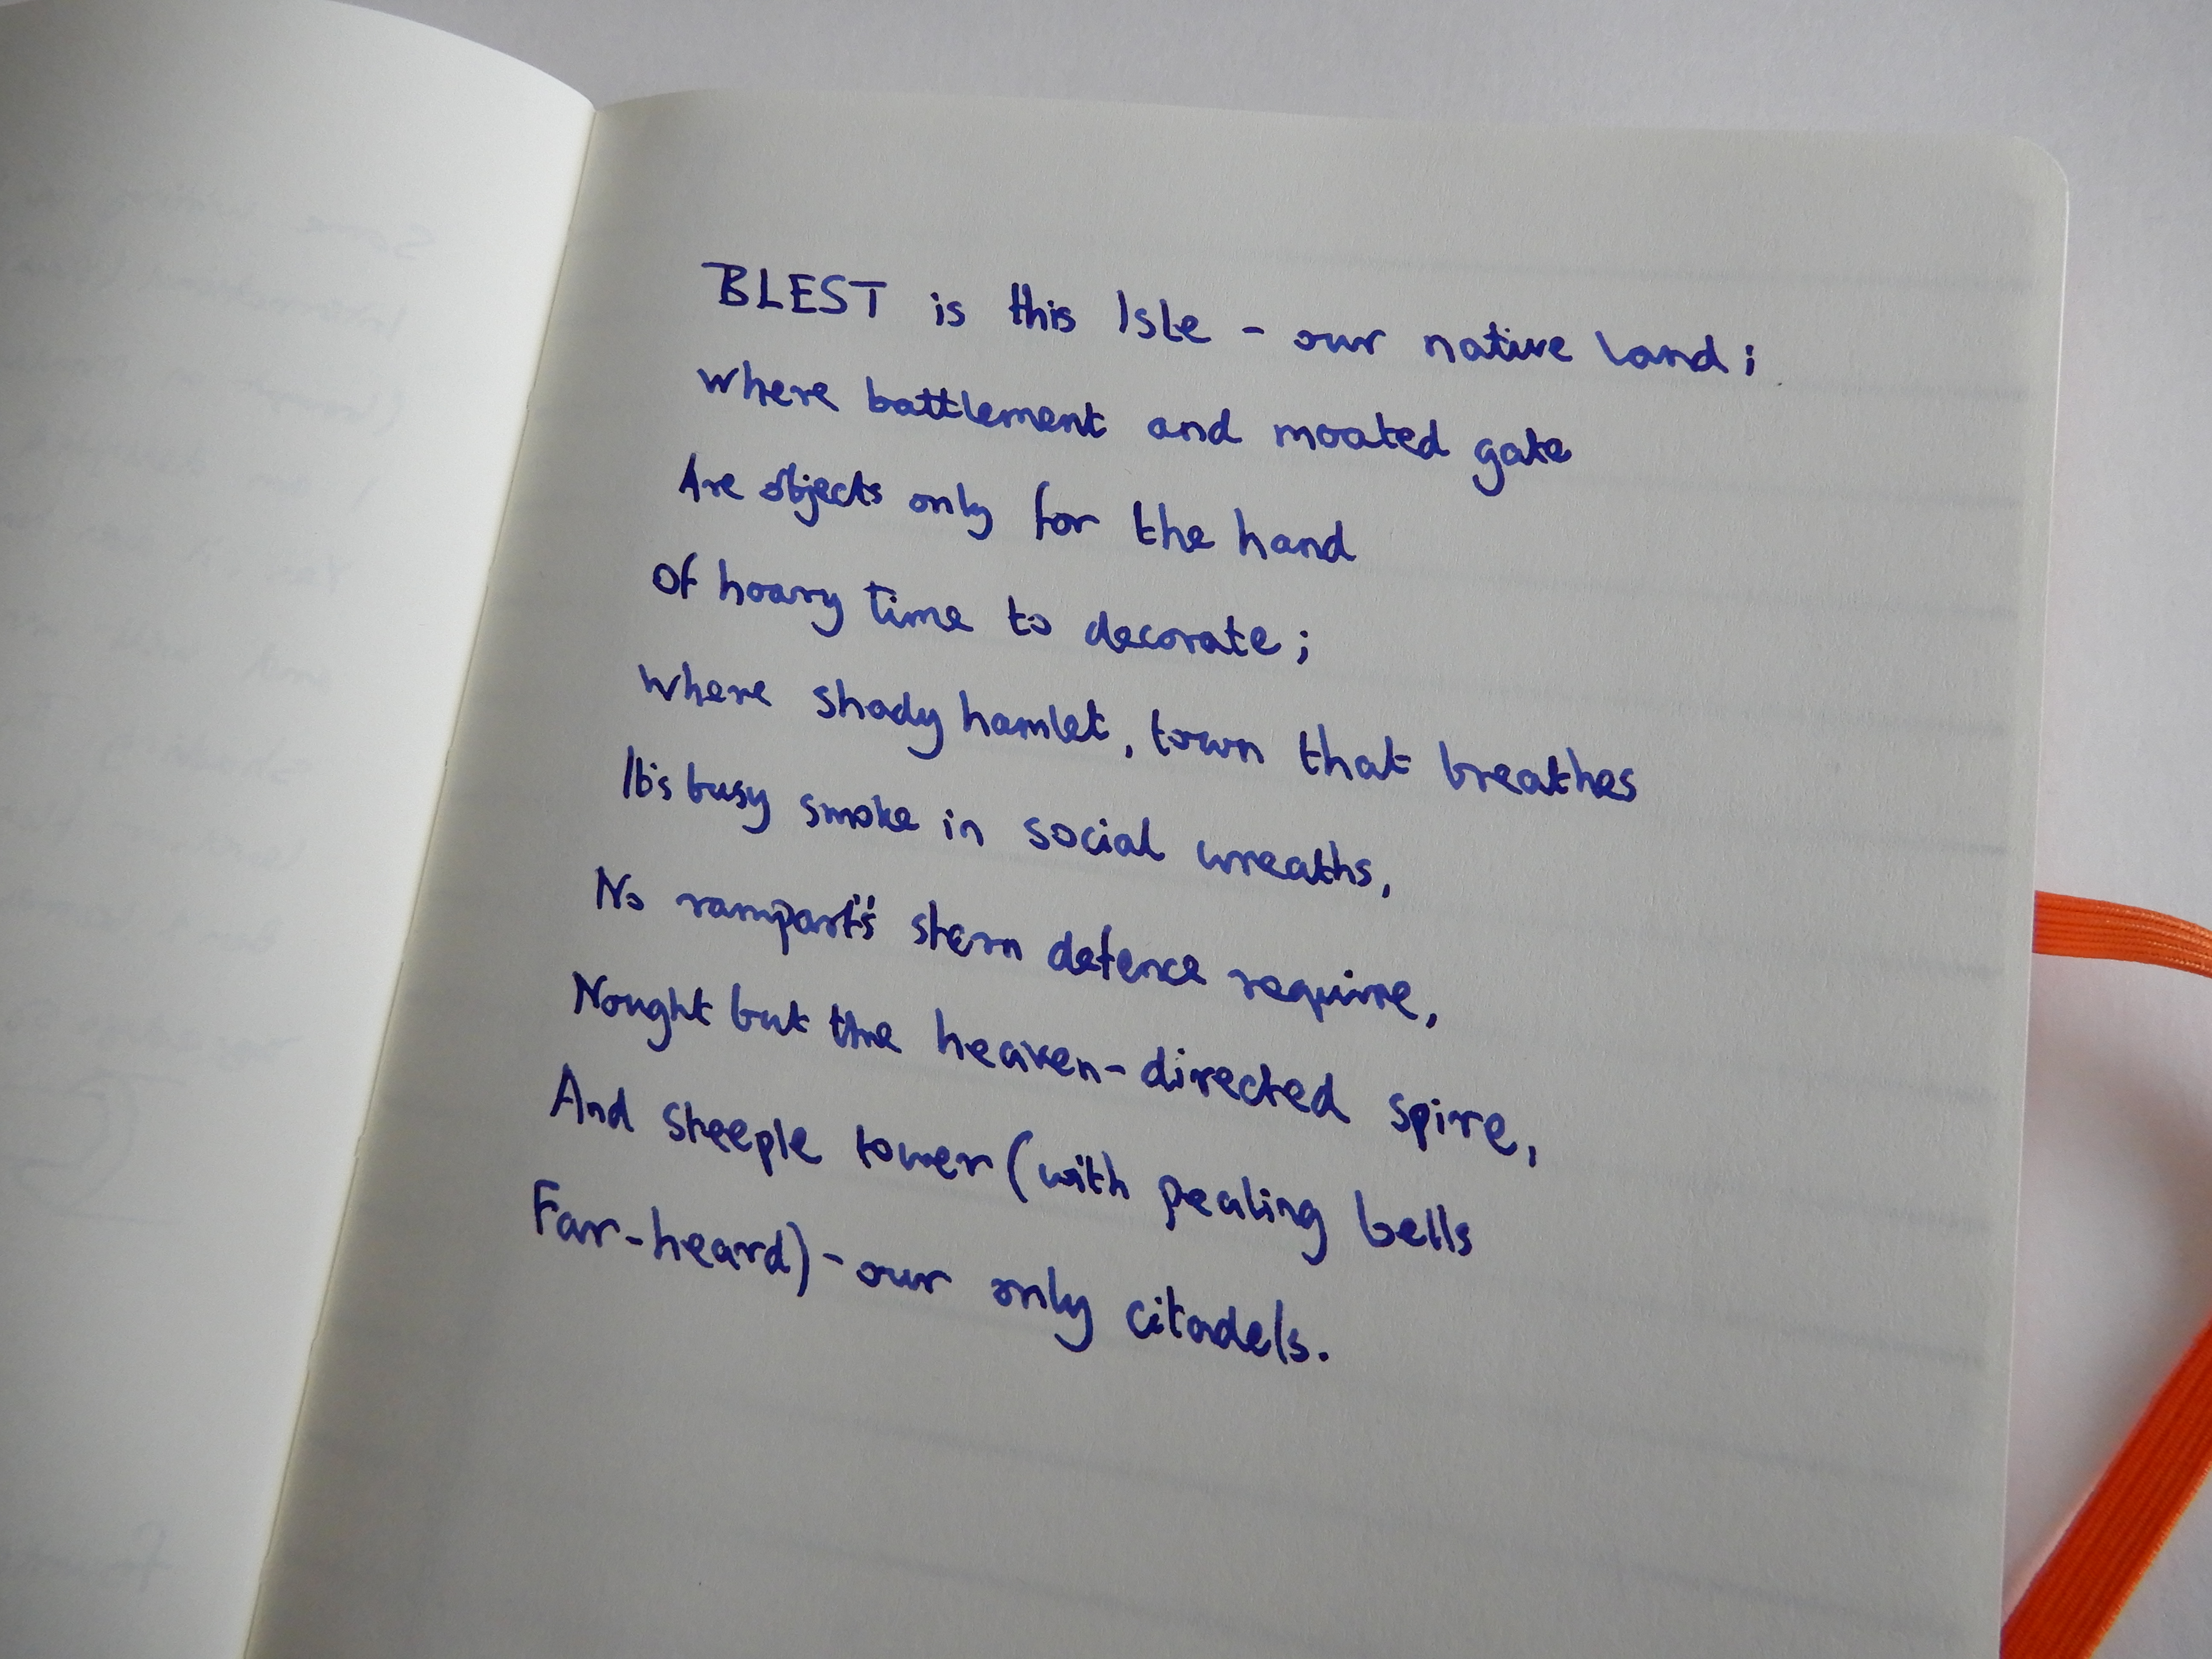 BLEST is this Isle - our native land;
where battlement and moated gate
Are objects only for the hand
Of hoary time to decorate;
Where shady hamlet, town that breathes
Its busy smoke in social wreaths,
No rampart's stern defence require,
Nought but the heaven-directed spire,
And steeple tower (with pealing bells
Far-heard) - our only citadels.